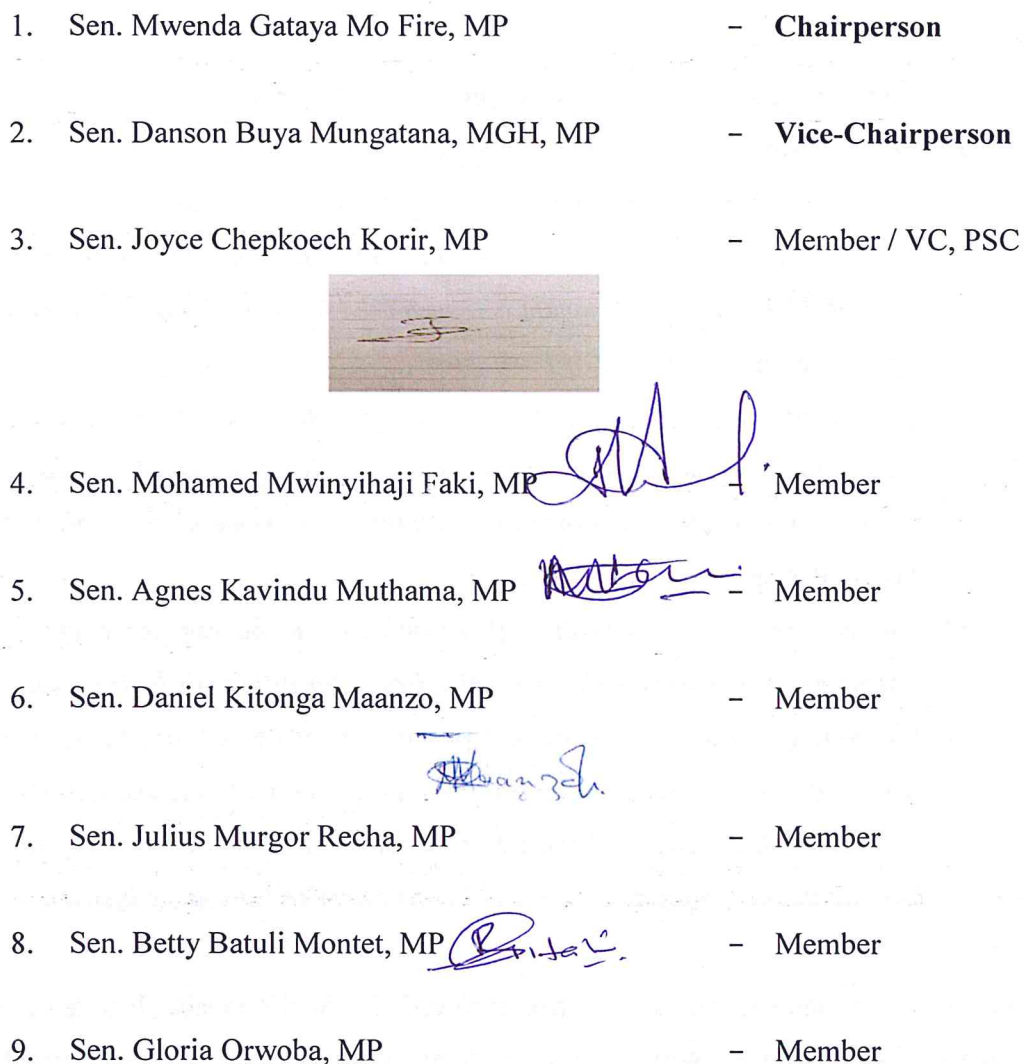 1. Sen. Mwenda Gataya Mo Fire, MP – Chairperson
2. Sen. Danson Buya Mungatana, MGH, MP – Vice-Chairperson
3. Sen. Joyce Chepkoech Korir, MP – Member / VC, PSC
4. Sen. Mohamed Mwinyihaji Faki, MP – Member
5. Sen. Agnes Kavindu Muthama, MP – Member
6. Sen. Daniel Kitonga Maanzo, MP – Member
7. Sen. Julius Murgor Recha, MP – Member
8. Sen. Betty Batuli Montet, MP – Member
9. Sen. Gloria Orwoba, MP – Member